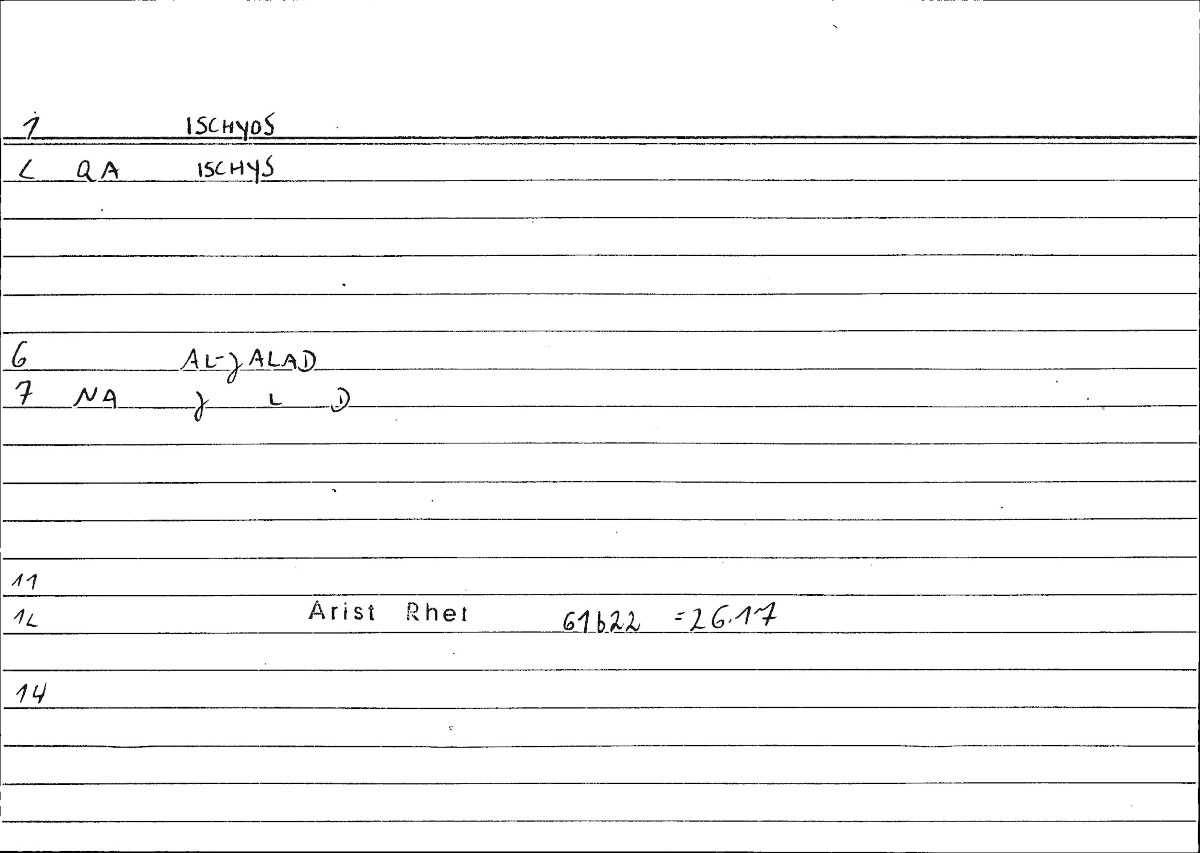 1 ISCHYOS
2 QA ISCHYS
6 AL-ȷALAD
7 NA ȷ L D
11
12 Arist Rhet 61b22 =26.17
14